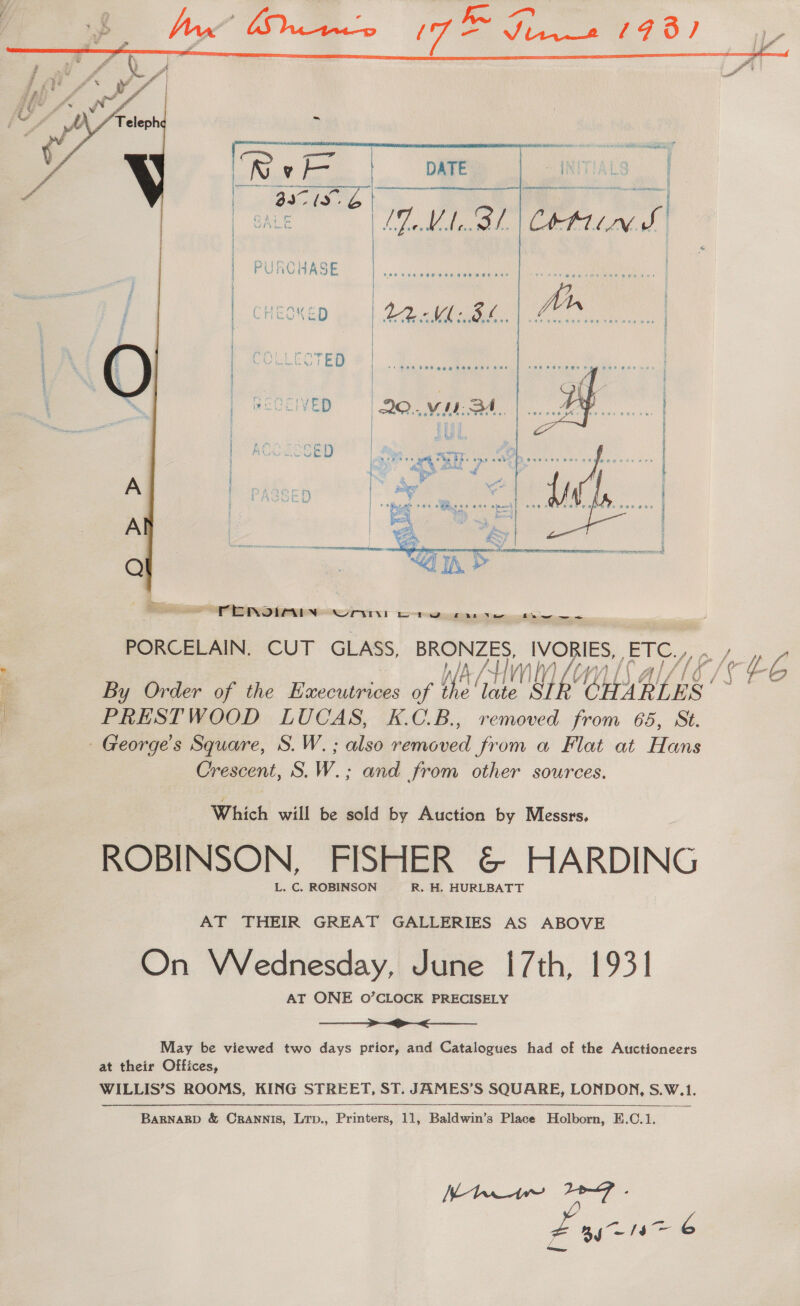 17th June 1931
Telepho
W
R & F DATE INITIALS
35-15-6
SALE 17.VI.31. COMINS
PURCHASE
CHECKED 22.VI.31.
COLLECTED
RECEIVED 20.VII.31.
JUL
ACCESSED
PASSED
O
A
AN
Q
PORCELAIN, CUT GLASS, BRONZES, IVORIES, ETC.,
By Order of the Executrices of the late SIR CHARLES
PRESTWOOD LUCAS, K.C.B., removed from 65, St.
George's Square, S.W.; also removed from a Flat at Hans
Crescent, S.W.; and from other sources.
Which will be sold by Auction by Messrs.
ROBINSON, FISHER & HARDING
L. C. ROBINSON R. H. HURLBATT
AT THEIR GREAT GALLERIES AS ABOVE
On Wednesday, June 17th, 1931
AT ONE O'CLOCK PRECISELY
May be viewed two days prior, and Catalogues had of the Auctioneers
at their Offices,
WILLIS'S ROOMS, KING STREET, ST. JAMES'S SQUARE, LONDON, S.W.1.
BARNARD & CRANNIS, LTD., Printers, 11, Baldwin's Place Holborn, E.C.1.
£35-15-6